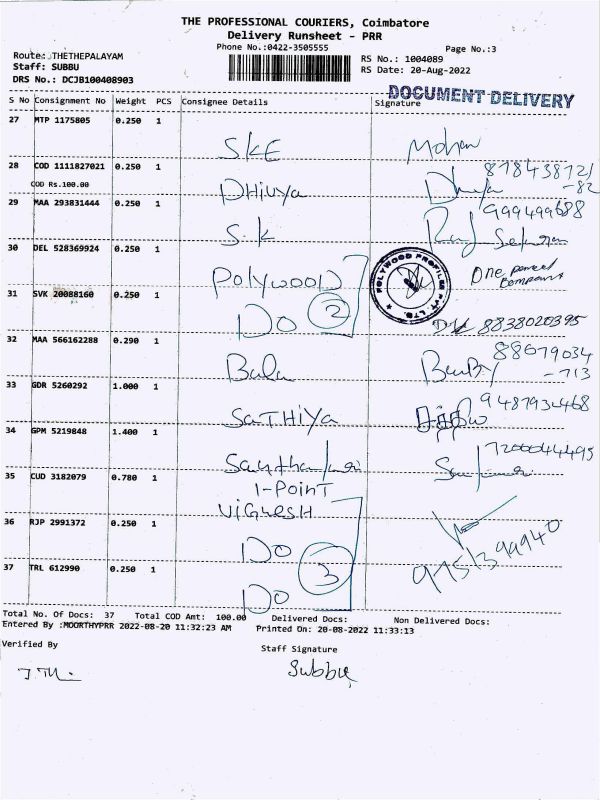 THE PROFESSIONAL COURIERS, Coimbatore
Delivery Runsheet - PRR
Phone No.:0422-3505555
Page No.:3
Route: THETHEPALAYAM
Staff: SUBBU
DRS No.: DCJB100408903
RS No.: 1004089
RS Date: 20-Aug-2022
DOCUMENT DELIVERY
S No Consignment No Weight PCS Consignee Details Signature
27 MTP 1175805 0.250 1
SKE Mohan
28 COD 1111827021 0.250 1
COD Rs.100.00
DHIVYA
29 MAA 293831444 0.250 1
S.K
30 DEL 528369924 0.250 1
POLYWOOD
One parcel
31 SVK 20088160 0.250 1
DO 2 8838020395
32 MAA 566162288 0.290 1
Bala 88679034
-713
33 GDR 5260292 1.000 1
SATHIYA 9487934468
34 GPM 5219848 1.400 1
7200044495
35 CUD 3182079 0.780 1
I-POINT
VIGNESH
36 RJP 2991372 0.250 1
DO
37 TRL 612990 0.250 1
DO 3
Total No. Of Docs: 37 Total COD Amt: 100.00 Delivered Docs: Non Delivered Docs:
Entered By :MOORTHYPRR 2022-08-20 11:32:23 AM Printed On: 20-08-2022 11:33:13
Verified By
Staff Signature
Subbu